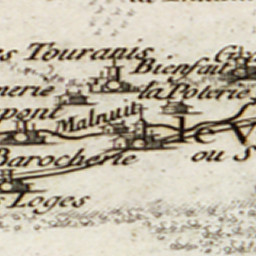 Touranis
Bienfait
nerie
la Poterie
pont
Malnuit
le V
Barocherie
ou S
Loges